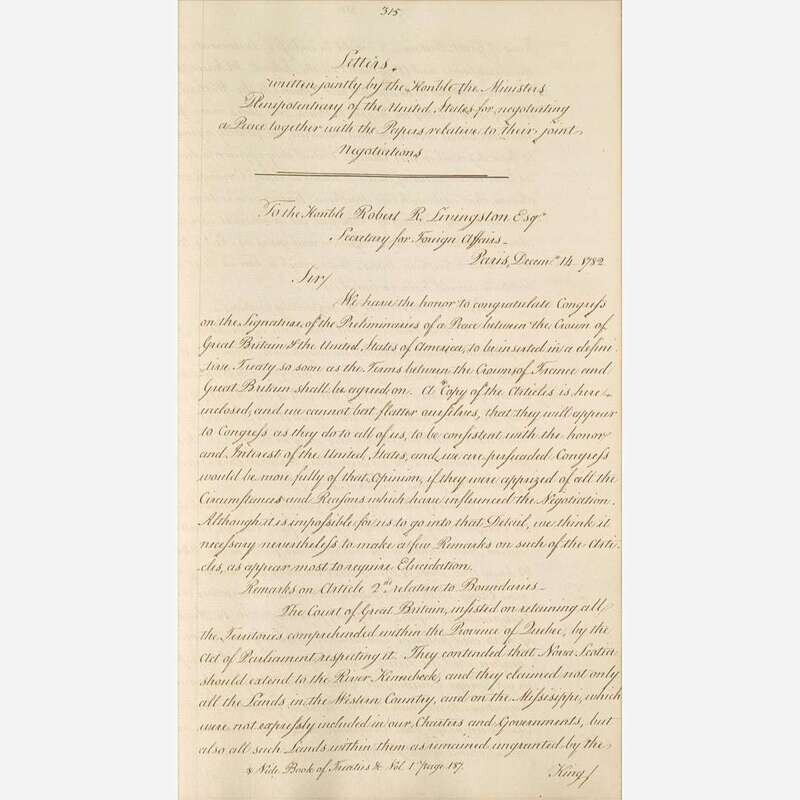 315
Letters.
written jointly by the Honble. the Ministers
Plenipotentiary of the United States for negotiating
a Peace together with the Papers relative to their joint
Negotiations
To the Honble Robert R. Livingston Esqr.
Secretary for Foreign Affairs_
Paris, Decemr. 14 1782
Sir/
We have the honor to congratulate Congreſs
on the Signature of the Preliminaries of a Peace between the Crown of
Great Britain & the United States of America, to be inserted in a defini-
tive Treaty so soon as the Terms between the Crowns of France and
Great Britain shall be agreed on. A Copy of the Articles is here-
inclosed, and we cannot but flatter ourſelves, that they will appear
to Congreſs as they do to all of us, to be conſistent with the honor
and Interest of the United States, and we are perſuaded Congreſs
would be more fully of that Opinion, if they were apprized of all the
Circumſtances and Reasons which have influenced the Negotiation.
Although it is impoſsible for us to go into that Detail, we think it
neceſsary nevertheleſs to make a few Remarks on such of the Arti-
cles, as appear most to require Elucidation.
Remarks on Article 2d. relative to Boundaries_
The Court of Great Britain, inſisted on retaining all
the Territories comprehended within the Province of Quebec, by the
Act of Parliament respecting it. They contended that Nova Scotia
should extend to the River Kennebeck, and they claimed not only
all the Lands in the Western Country, and on the Miſsiſsippi, which
were not expreſsly included in our Charters and Governments, but
also all such Lands within them as remained ungranted by the
Vide Book of Treaties &c Vol. 1st page 187.
King/